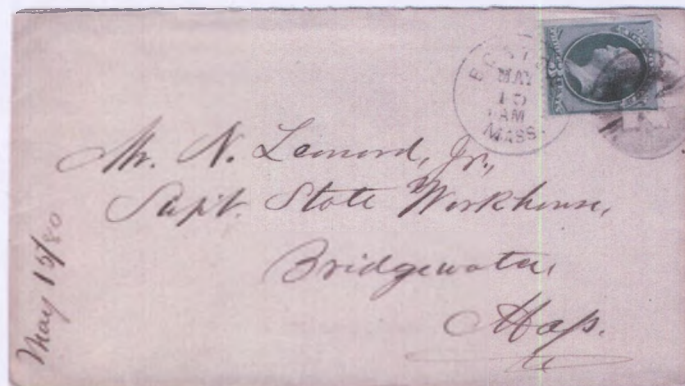 BOST
MAY
15
AM
MASS.
Mr. N. Leonard, Jr.,
Supt. State Workhouse,
Bridgewater,
Mass.
May 15/80